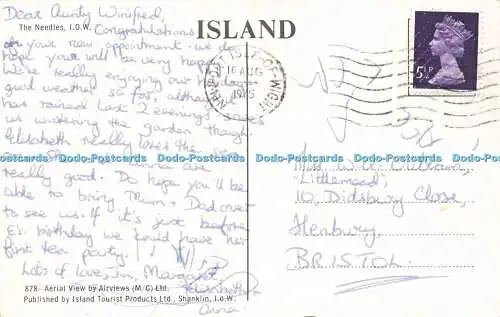 ISLAND
The Needles, I.O.W.
Dear Aunty Winifred,
Congratulations
on your new appointment - we do
hope you will be very happy.
We're really enjoying our hols
good weather so far, although
has rained last 2 evenings - saves
us watering the garden though.
Elizabeth really loves the sea
really good. Do hope you'll be
able to bring Mum & Dad over
to see us. If it's just before
E's birthday we could have her
first tea party.
Lots of love, Jim, Margaret
Elizabeth &
Anna.
878- Aerial View by Airviews (M/C) Ltd.
Published by Island Tourist Products Ltd., Shanklin, I.o.W.
NEWPORT ISLE OF WIGHT
16 AUG
1975
5½P
Miss W.A.
10, Didsbury Close,
Henbury,
BRISTOL.
Dodo-Postcards Dodo-Postcards Dodo-Postcards Dodo-Postcards Dodo-Postcards Dodo-Postcards